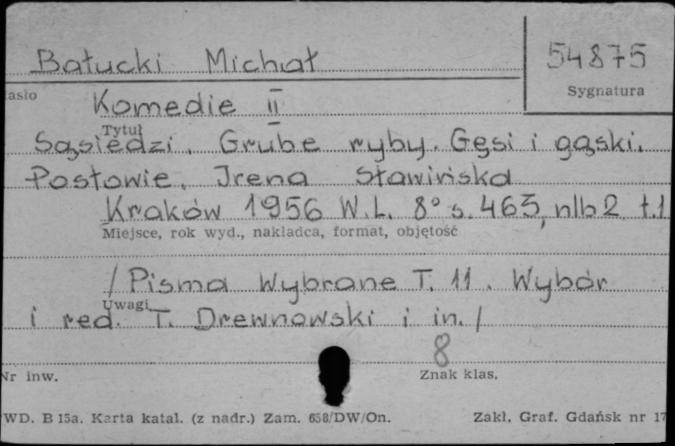 Bałucki Michał 54875
asło Sygnatura
Komedie II
Tytuł
Sąsiedzi. Grube ryby. Gęsi i gąski.
Posłowie. Irena Sławińska
Kraków 1956 W.L. 8° s. 463, nlb 2 t.1
Miejsce, rok wyd., nakładca, format, objętość
/Pisma Wybrane T. 11. Wybór
Uwagi
i red. T. Drewnowski i in./
8
Nr inw. Znak klas.
WD. B 15a. Karta katal. (z nadr.) Zam. 658/DW/On. Zakł. Graf. Gdańsk nr 17